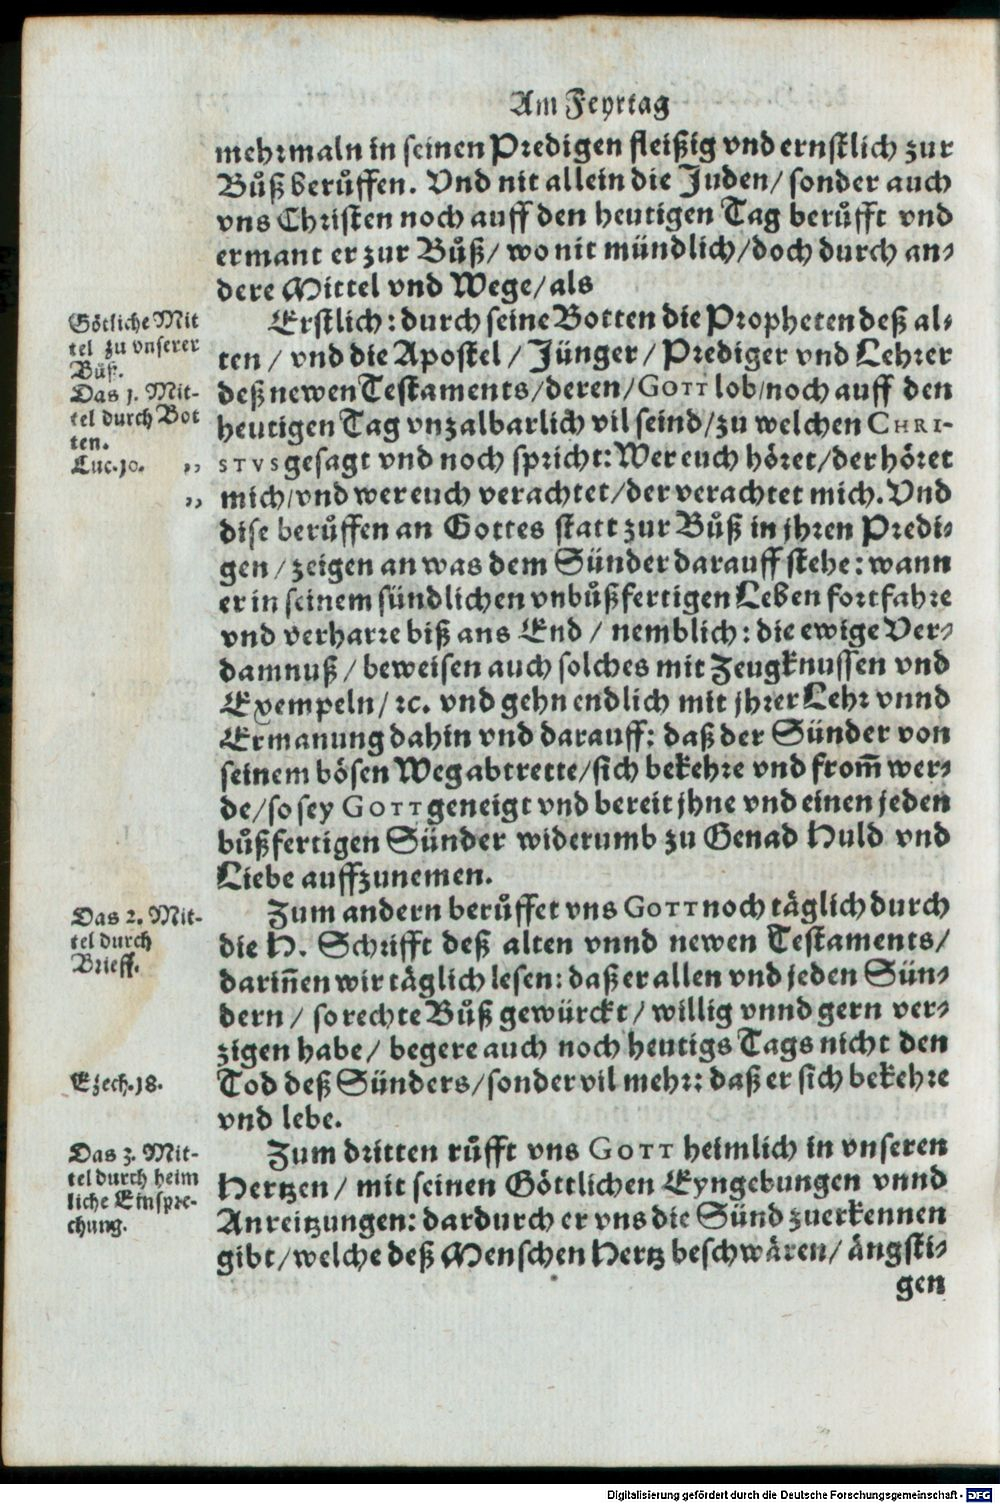 Am Feyrtag
mehrmaln in seinen Predigen fleißig vnd ernstlich zur
Bůß berůffen. Vnd nit allein die Juden/ sonder auch
vns Christen noch auff den heutigen Tag berůfft vnd
ermant er zur Bůß/ wo nit mündlich/ doch durch an-
dere Mittel vnd Wege/ als
Götliche Mit
tel zu vnserer
Bůß.
Erstlich: durch seine Botten die Propheten deß al-
ten/ vnd die Apostel/ Jünger/ Prediger vnd Lehrer
Das 1. Mit-
tel durch Bot
ten.
Luc. 10.
deß newen Testaments/ deren/ GOTT lob/ noch auff den
heutigen Tag vnzalbarlich vil seind/ zu welchen CHRI-
,, STVS gesagt vnd noch spricht: Wer euch höret/ der höret
,, mich/ vnd wer euch verachtet/ der verachtet mich. Vnd
dise berůffen an Gottes statt zur Bůß in jhren Predi-
gen/ zeigen an was dem Sünder darauff stehe: wann
er in seinem sündlichen vnbůßfertigen Leben fortfahre
vnd verharre biß ans End/ nemblich: die ewige Ver-
damnuß/ beweisen auch solches mit Zeugknussen vnd
Exempeln/ ꝛc. vnd gehn endlich mit jhrer Lehr vnnd
Ermanung dahin vnd darauff: daß der Sünder von
seinem bösen Weg abtrette/ sich bekehre vnd from̃ wer-
de/ so sey GOTT geneigt vnd bereit jhne vnd einen jeden
bůßfertigen Sünder widerumb zu Genad Huld vnd
Liebe auffzunemen.
Das 2. Mit-
tel durch
Brieff.
Zum andern berůffet vns GOTT noch täglich durch
die H. Schrifft deß alten vnnd newen Testaments/
darin̄en wir täglich lesen: daß er allen vnd jeden Sün-
dern/ so rechte Bůß gewürckt/ willig vnnd gern ver-
zigen habe/ begere auch noch heutigs Tags nicht den
Ezech. 18.
Tod deß Sünders/ sonder vil mehr: daß er sich bekehre
vnd lebe.
Das 3. Mit-
tel durch heim
liche Einspre-
chung.
Zum dritten růfft vns GOTT heimlich in vnseren
Hertzen/ mit seinen Göttlichen Eyngebungen vnnd
Anreitzungen: dardurch er vns die Sünd zuerkennen
gibt/ welche deß Menschen Hertz beschwären/ ängsti-
gen
Digitalisierung gefördert durch die Deutsche Forschungsgemeinschaft - DFG